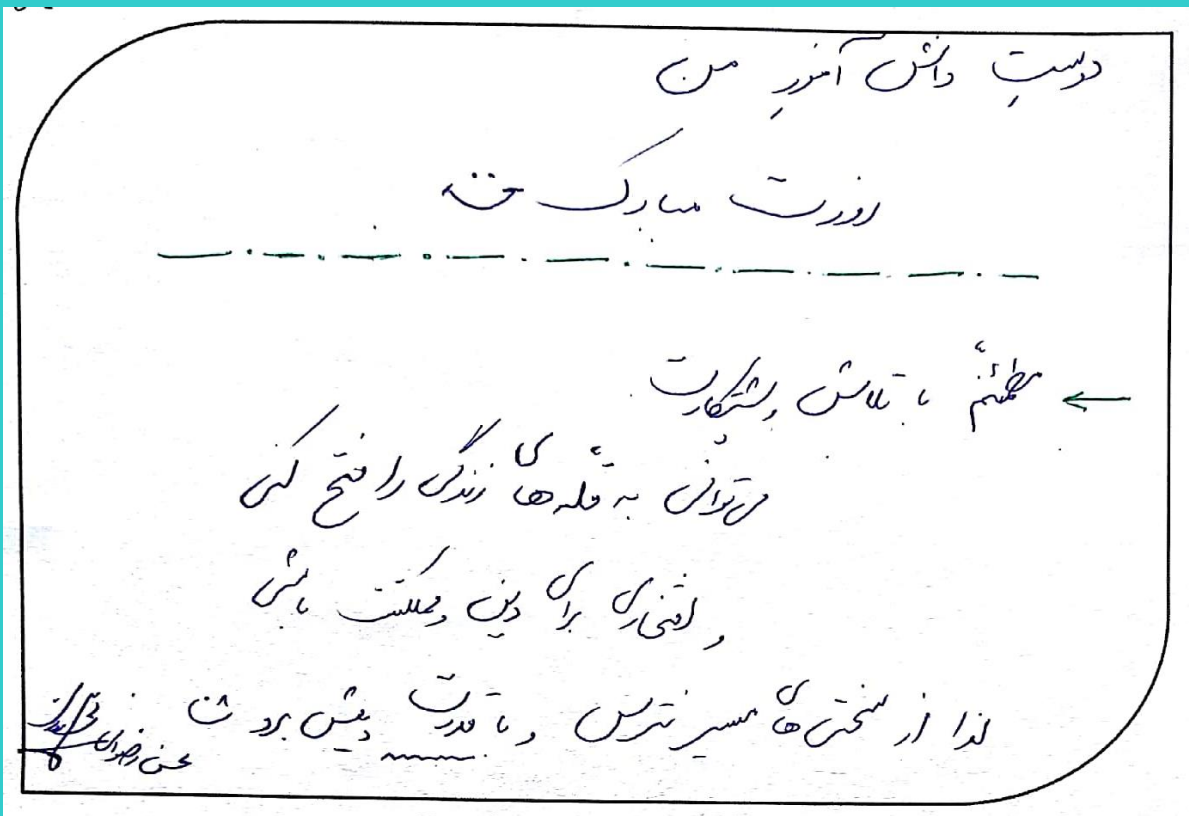 دوستِ دانش آموزِ من
روزت مبارک
← مطمئنّم با تلاش و پشتکارت
می‌توانی به قلّه‌های زندگی را فتح کنی
و افتخاری برای دین و مملکتت باشی
لذا از سختی‌های مسیر نترس و با قدرت پیش برو
محسن